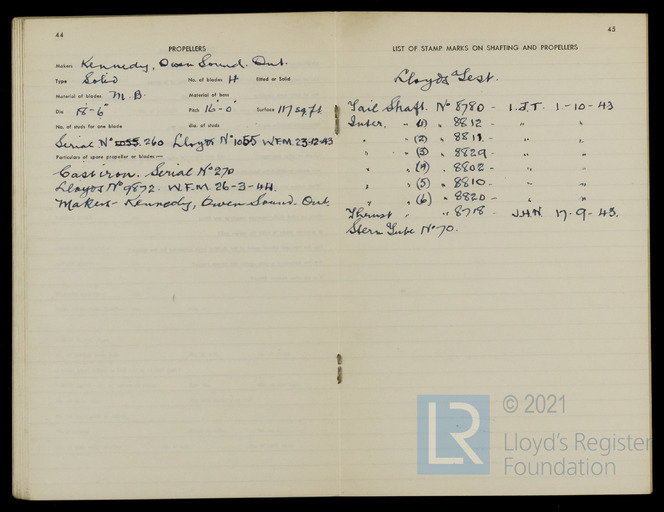 44
PROPELLERS
Makers Kennedy, Owen Sound. Ont.
Type Solid No. of blades 4 fitted or Solid
Material of blades M.B. Material of boss
Dia 18'-6" Pitch 16'-0" Surface 117 sq. ft.
No. of studs for one blade dia. of studs
Serial No 1055 260 Lloyds No 1055 W.F.M. 23-12-43
Particulars of spare propeller or blades:—
Cast iron. Serial No 270
Lloyds No 9872. W.F.M. 26-3-44.
Makers- Kennedy, Owen Sound. Ont.
45
LIST OF STAMP MARKS ON SHAFTING AND PROPELLERS
Lloyds Test.
Tail Shaft. No 8780 - I.J.T. 1-10-43
Inter. " (1) " 8812 - " "
" " (2) " 8811 - " "
" " (3) " 8829 - " "
" " (4) " 8802 - " "
" " (5) " 8810 - " "
" " (6) " 8820 - " "
Thrust " " 8718 - J.H.N. 17-9-43.
Stern Tube No 70.
LR
© 2021
Lloyd's Register
Foundation